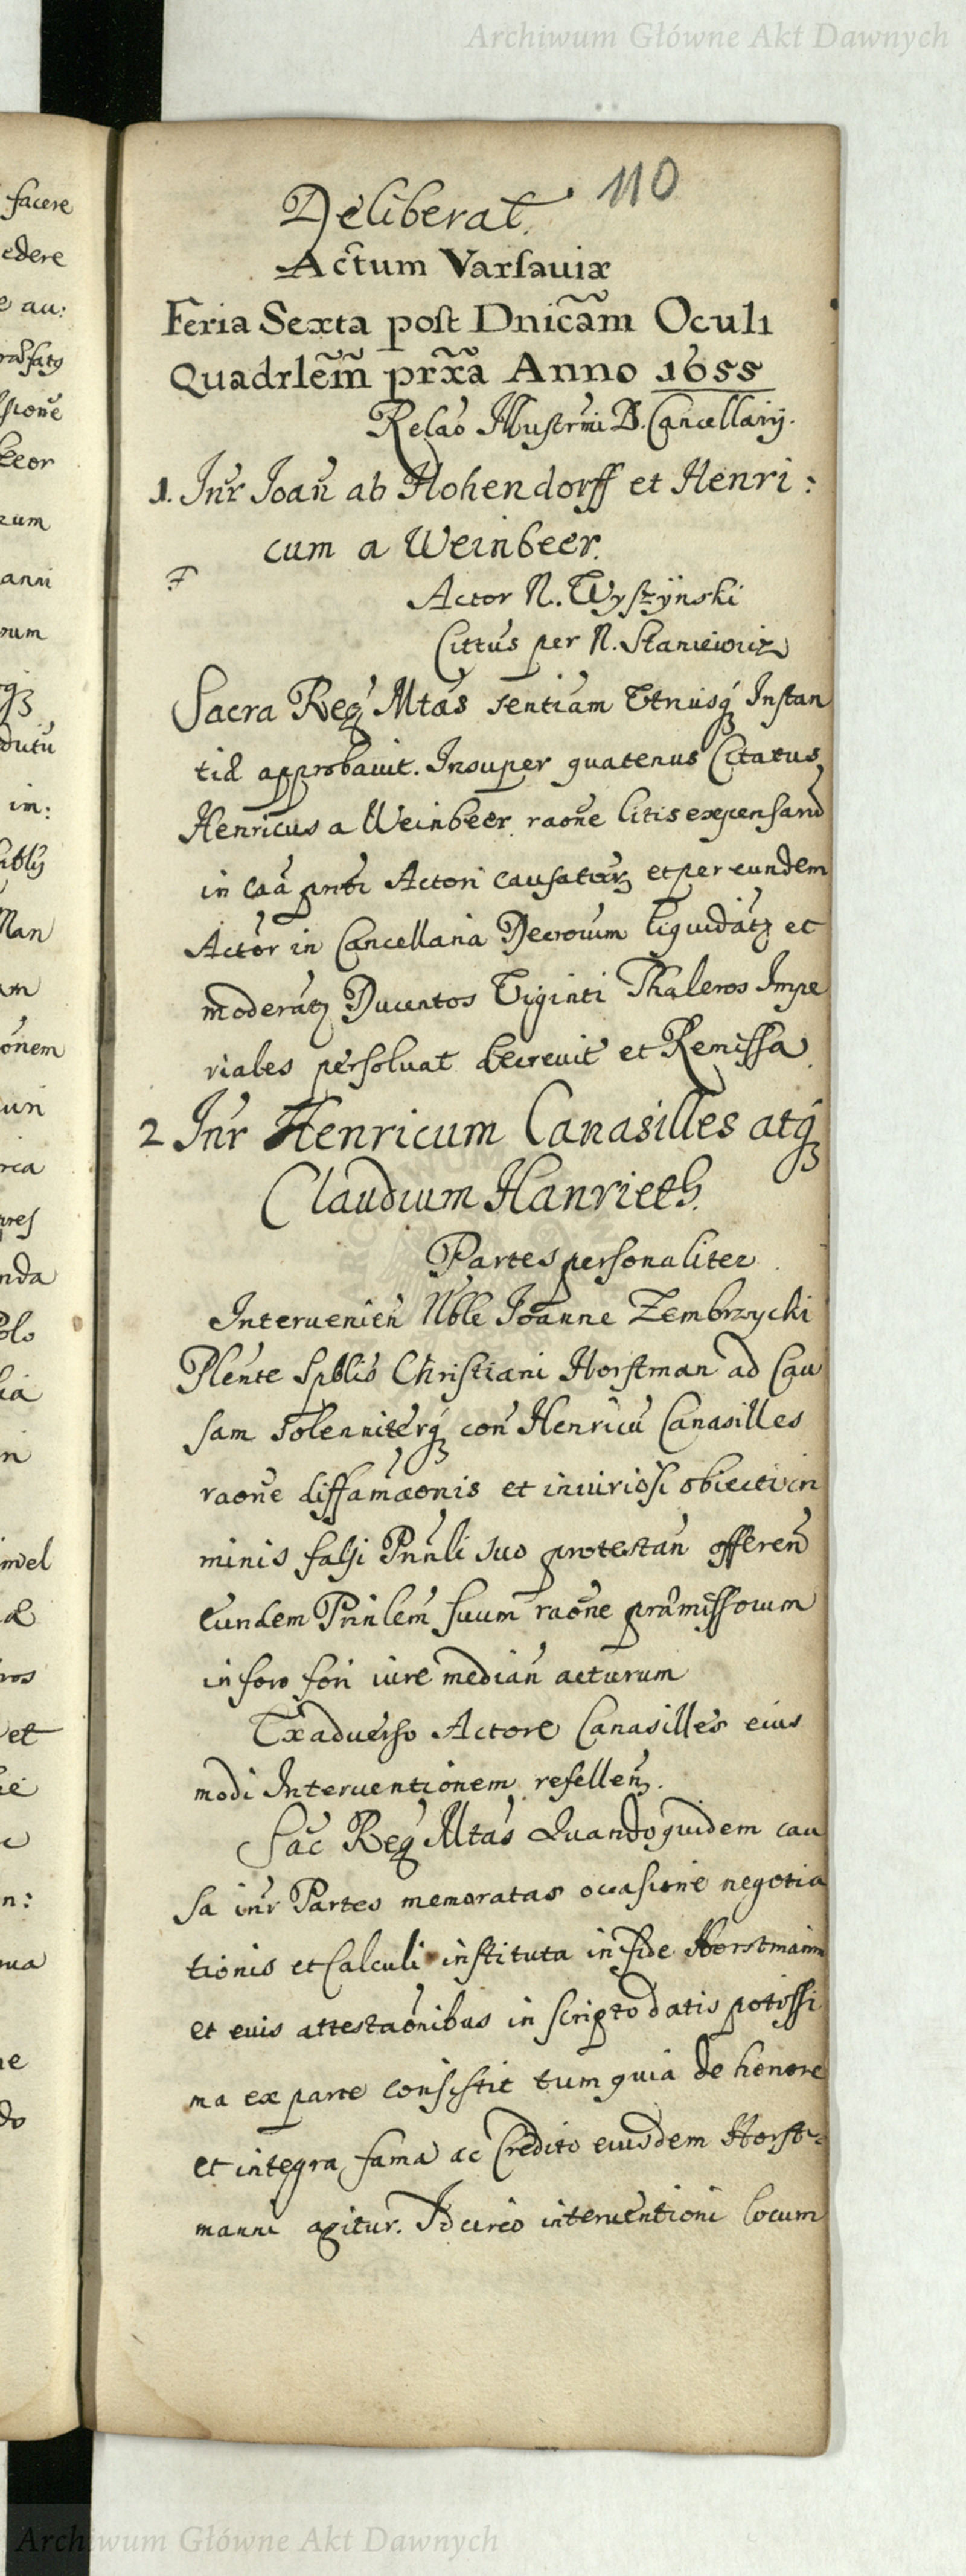 Archiwum Główne Akt Dawnych
110
Deliberat.
Actum Varsauiæ
Feria Sexta post Dnicam Oculi
Quadrlem prxa Anno 1655
Relao Illustrmi D. Cancellarij.
1. Inr Joan ab Hohendorff et Henri:
cum a Weinbeer.
Actor N. Wyszÿnski
Cittus per N. Staniewicz
Sacra Reg Mtas sentiam Vtriusq Instan
tiæ approbauit. Insuper quatenus Citatus
Henricus a Weinbeer raone litis expensarů
in caa pnti Actori causatarz et per eundem
Actor in Cancellaria Decrouim liquidatz et
moderatz Ducentos Viginti Thaleros Impe
riales persoluat decreuit et Remissa
2 Inr Henricum Canasilles atq
Claudium Hanrieth.
Partes personaliter
Interuenien Nble Joanne Zembrzycki
Plente Spblis Christiani Horstman ad Cau
sam solenniterq con Henricu Canasilles
raone diffamaonis et iniuriosi obiecti cri
minis falsi Pnnli suo protestan offeren
Eundem Prinlem suum raone præmissorum
in foro fori iure median acturum
Exaduerso Actore Canasilles eius
modi Interuentionem refellen.
Sac Reg Mtas Quandoquidem cau
sa inr Partes memoratas occasione negotia
tionis et Calculi instituta in fide Horstmanni
et euis attestaonibus in scripto datis potissi
ma ex parte consistit tum quia de honore
et integra fama ac Credito eiusdem Horst=
manni agitur. Idcirco interuentioni locum
facere
edere
e au:
keor
zum
anni
rum
dutu
im:
Man
am
onem
nda
in
imel
ros
et
n:
ne
do
Archiwum Główne Akt Dawnych